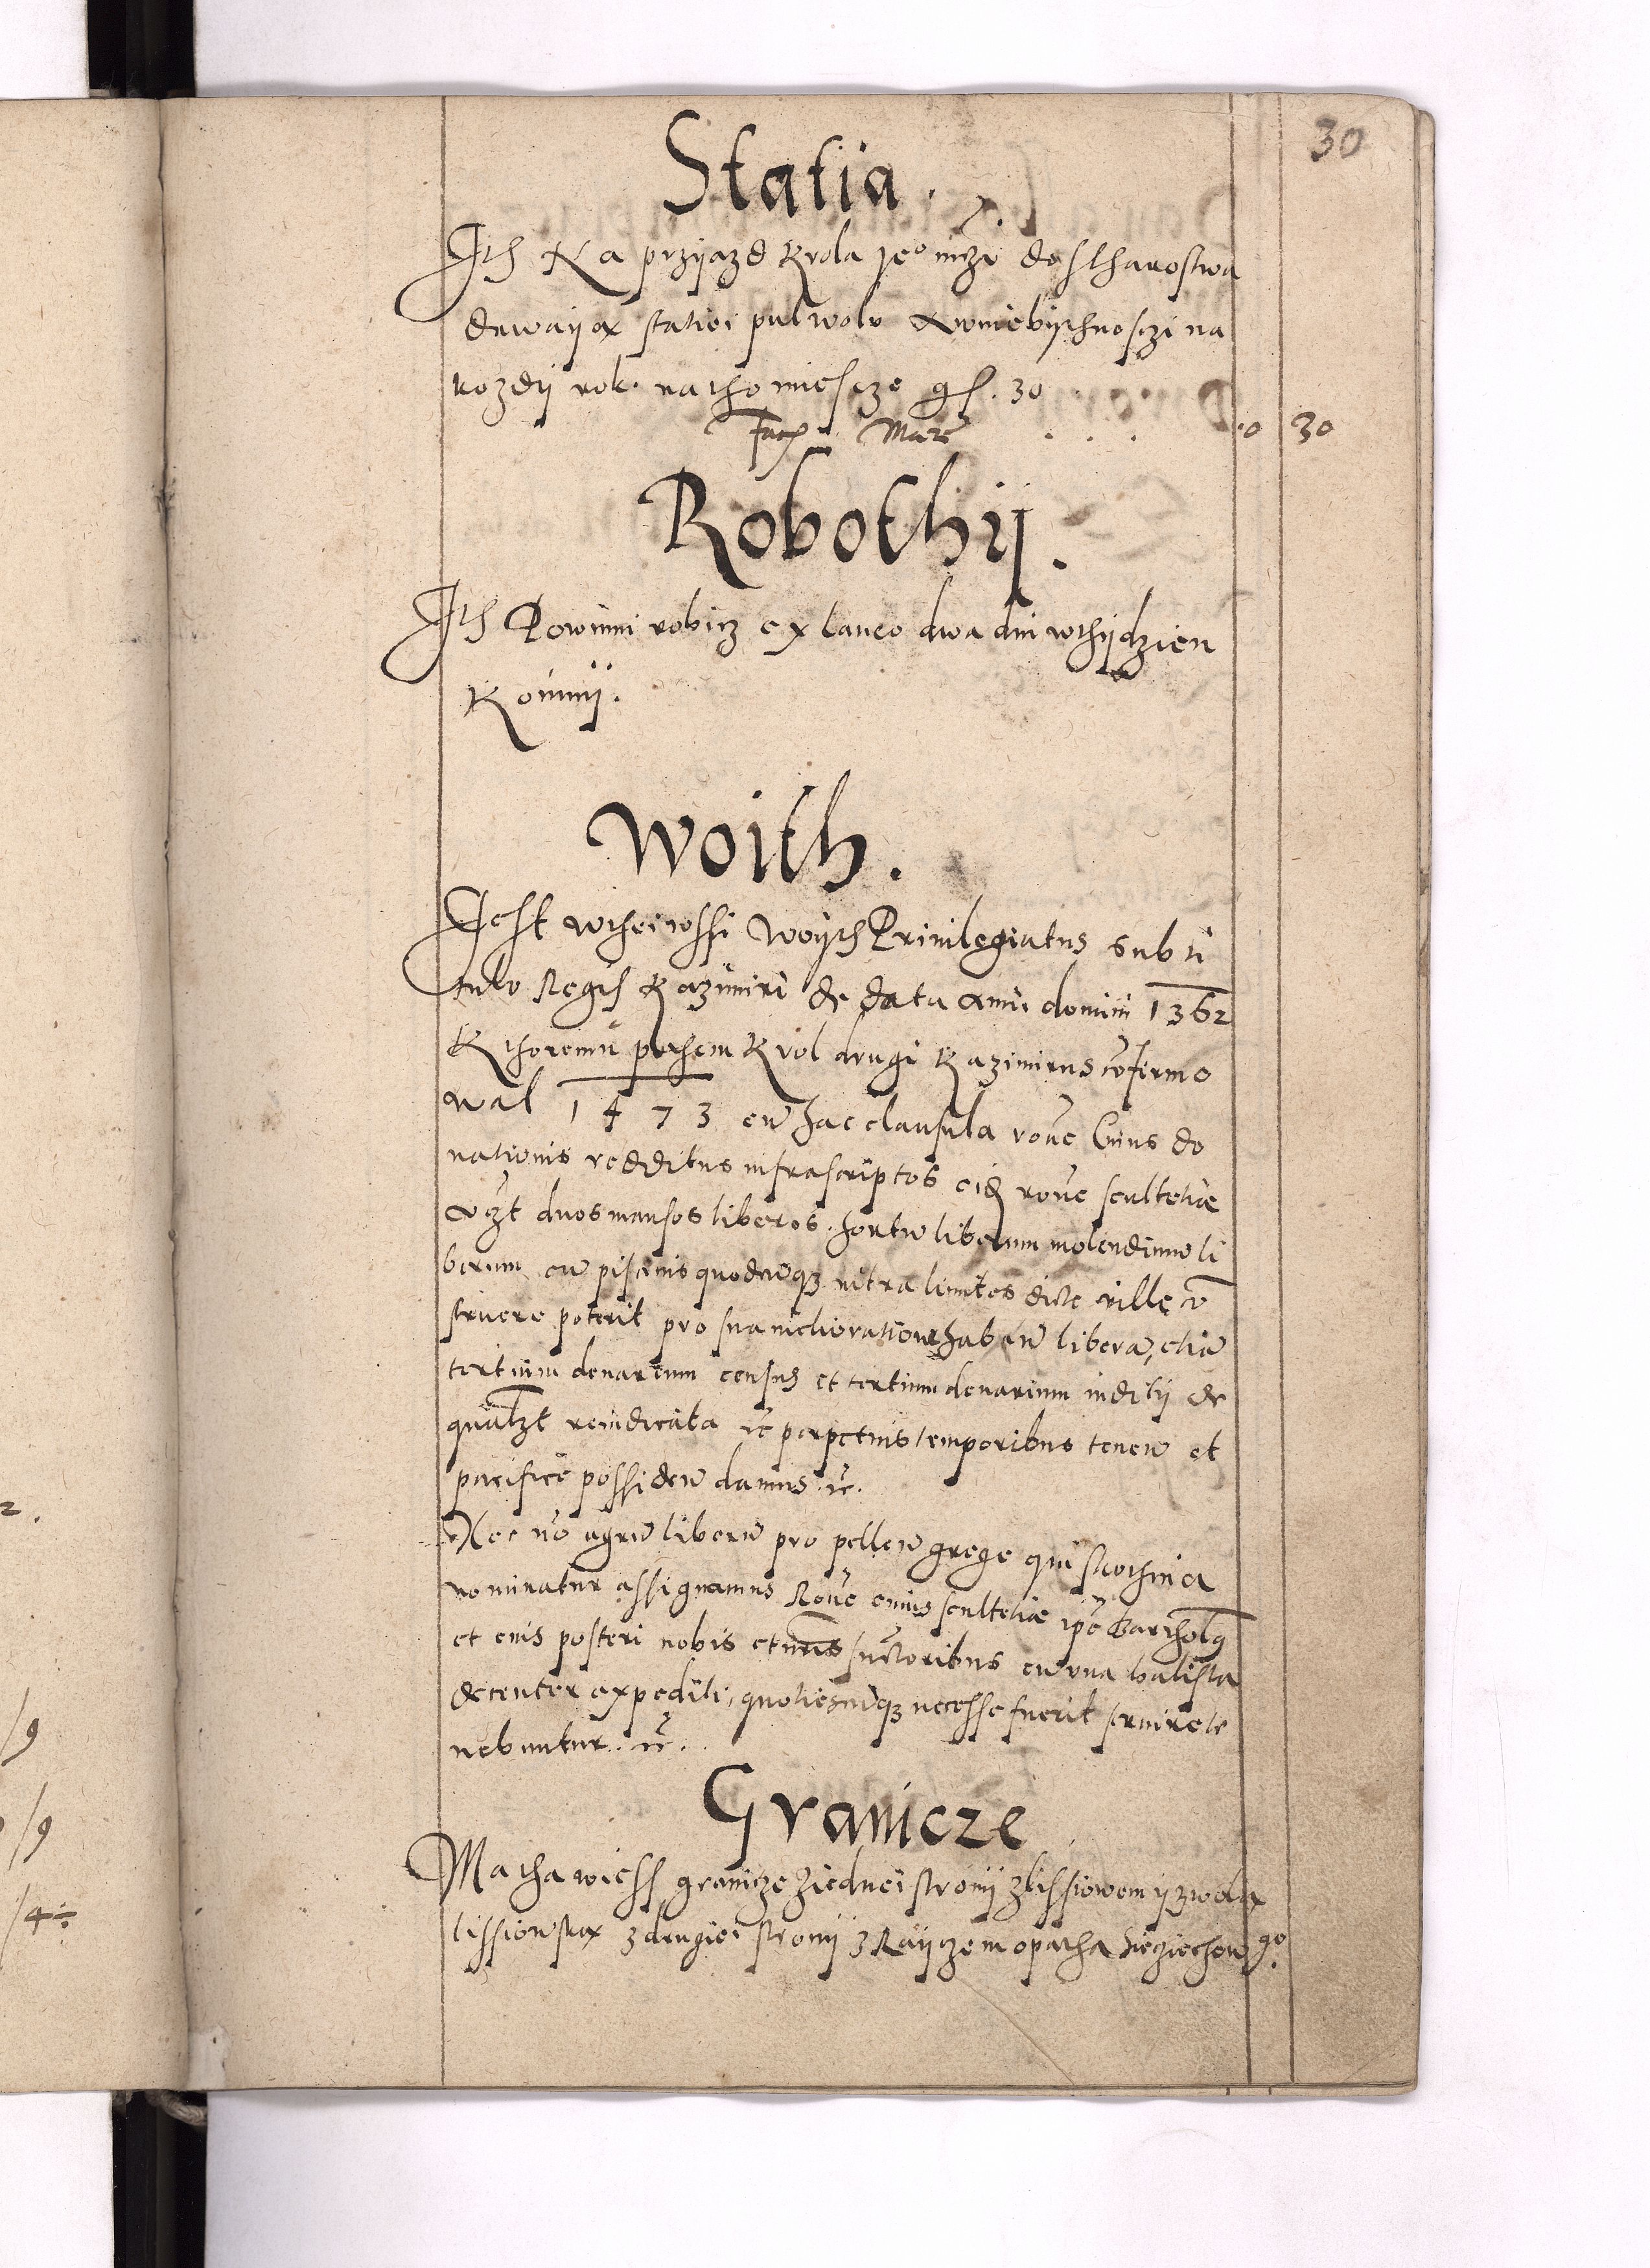 30
Statia.
Ith Na przijazd Krola je° mczi do stharostwa
dawaija statiei pul wolu Awniebijthnosczi na
kozdij rok. na tho miescze gs. 30
Facit Marc . . . . 0 30
Robothij.
Ith Powinni robicz ex laneo dwa dni wthijdzien
Konmij.
Woith.
Jest wthei wssi Woijth Priuilegiatus sub ti
tulo Regis Kazimiri de data Anni domini 1362
Kthoremu pothem Krol drugi Kazimirus cōfirmo
wal 1473 cū hac clausula rōne Cuius do
nationis redditus infrascriptos eidē rōne scultetiae
vczt duos mansos liberos. hortū liberum molendinū li
berum cū piscinis quodcūqz intra limites dicte ville cō
struere poterit pro sua melioratione habēn libera, etiā
tertium denarium census et tertium denarium inditij de
qualzt reiudicata rc perpetuis temporibus tenen et
pacifice possiden damus rc.
Nec nō agrū liberū pro pellen grege qui skothnia
nominatur assignamus Rōne cuius scultetiae ipē Barthols
et eius posteri nobis et nr̄is suctoribus cū vna balista
decenter expediti, quotiescūqz necesse fuerit seruire te
nebuntur. rc.
Granicze
Ma tha wiess granicze ziednei stronij zlissiowem ij zwola
lissiowska zdrugiei stronij z Raijczem opatha Sieciechow go.
2.
/9
/9
/4÷